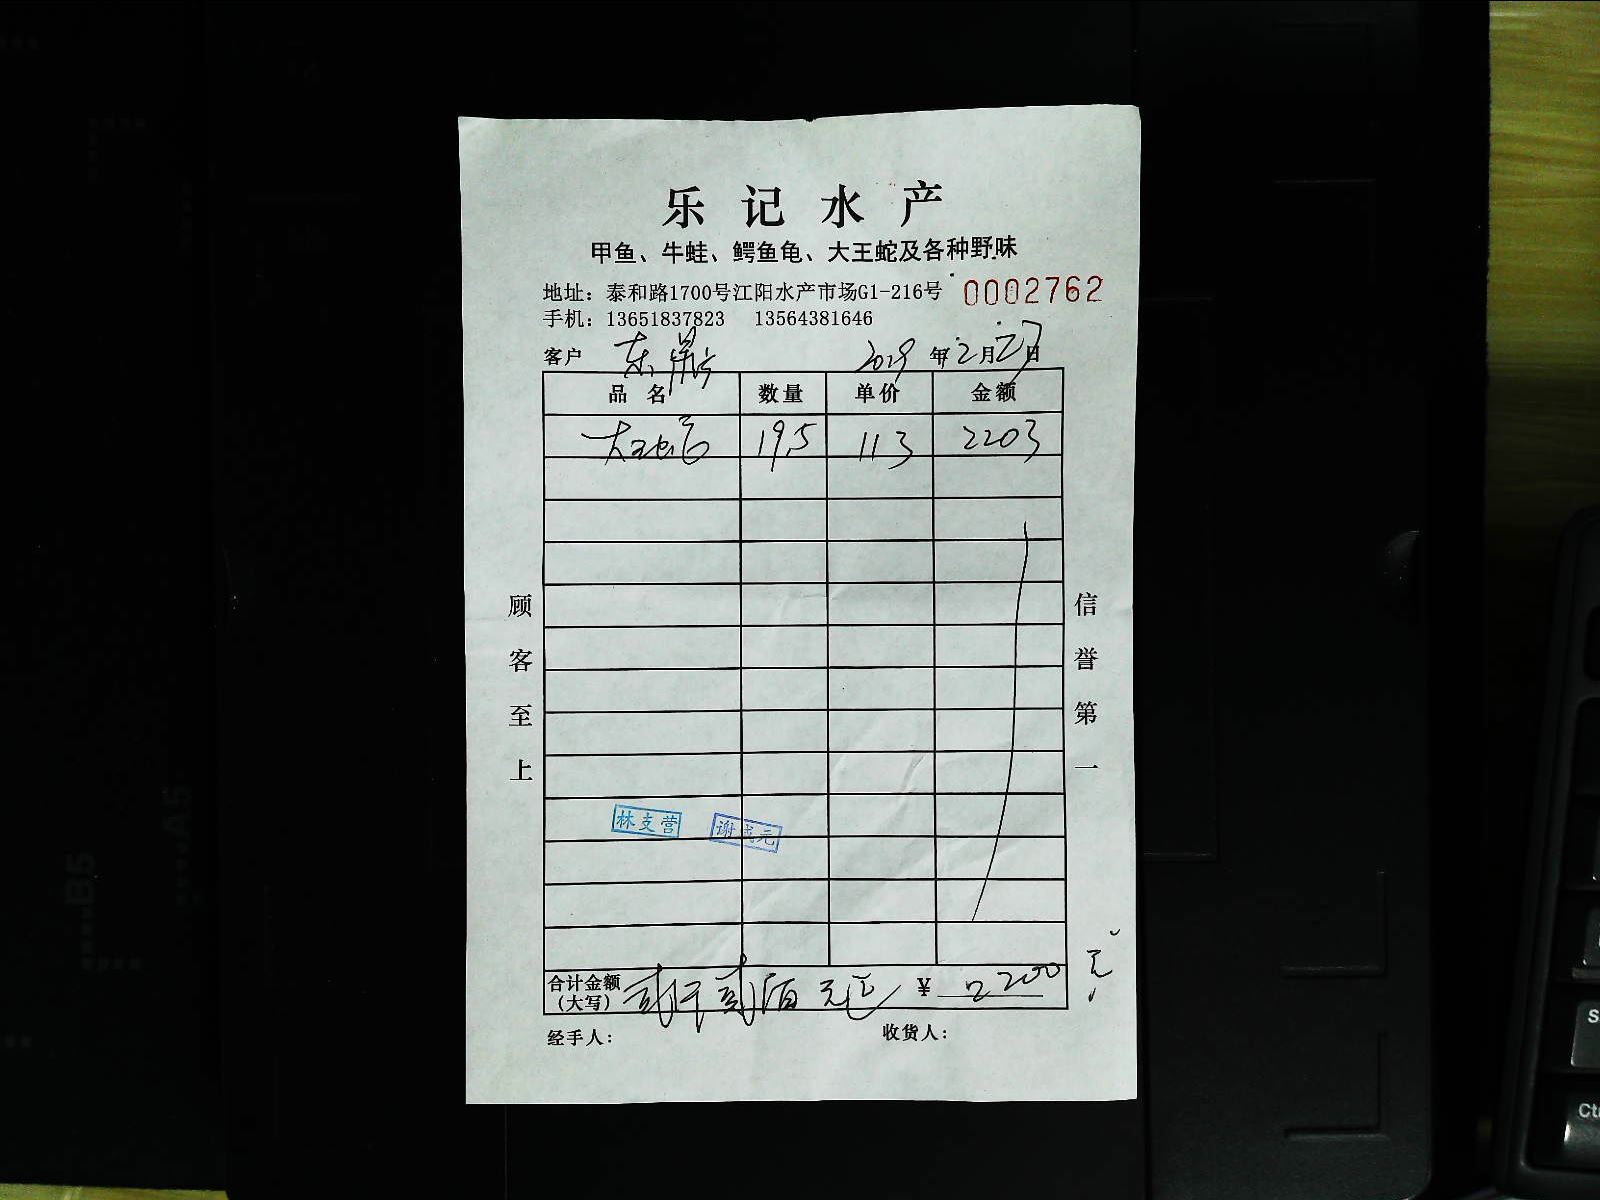 乐记水产
甲鱼、牛蛙、鳄鱼龟、大王蛇及各种野味
地址：泰和路1700号江阳水产市场G1-216号 0002762
手机：13651837823 13564381646
客户 东 2019 年 2 月 27 日
品名 数量 单价 金额
大王蛇 19.5 113 2203
顾客至上
信誉第一
林支营 谢成元
合计金额（大写） 贰仟贰佰元正 ¥ 2200 元
经手人： 收货人：